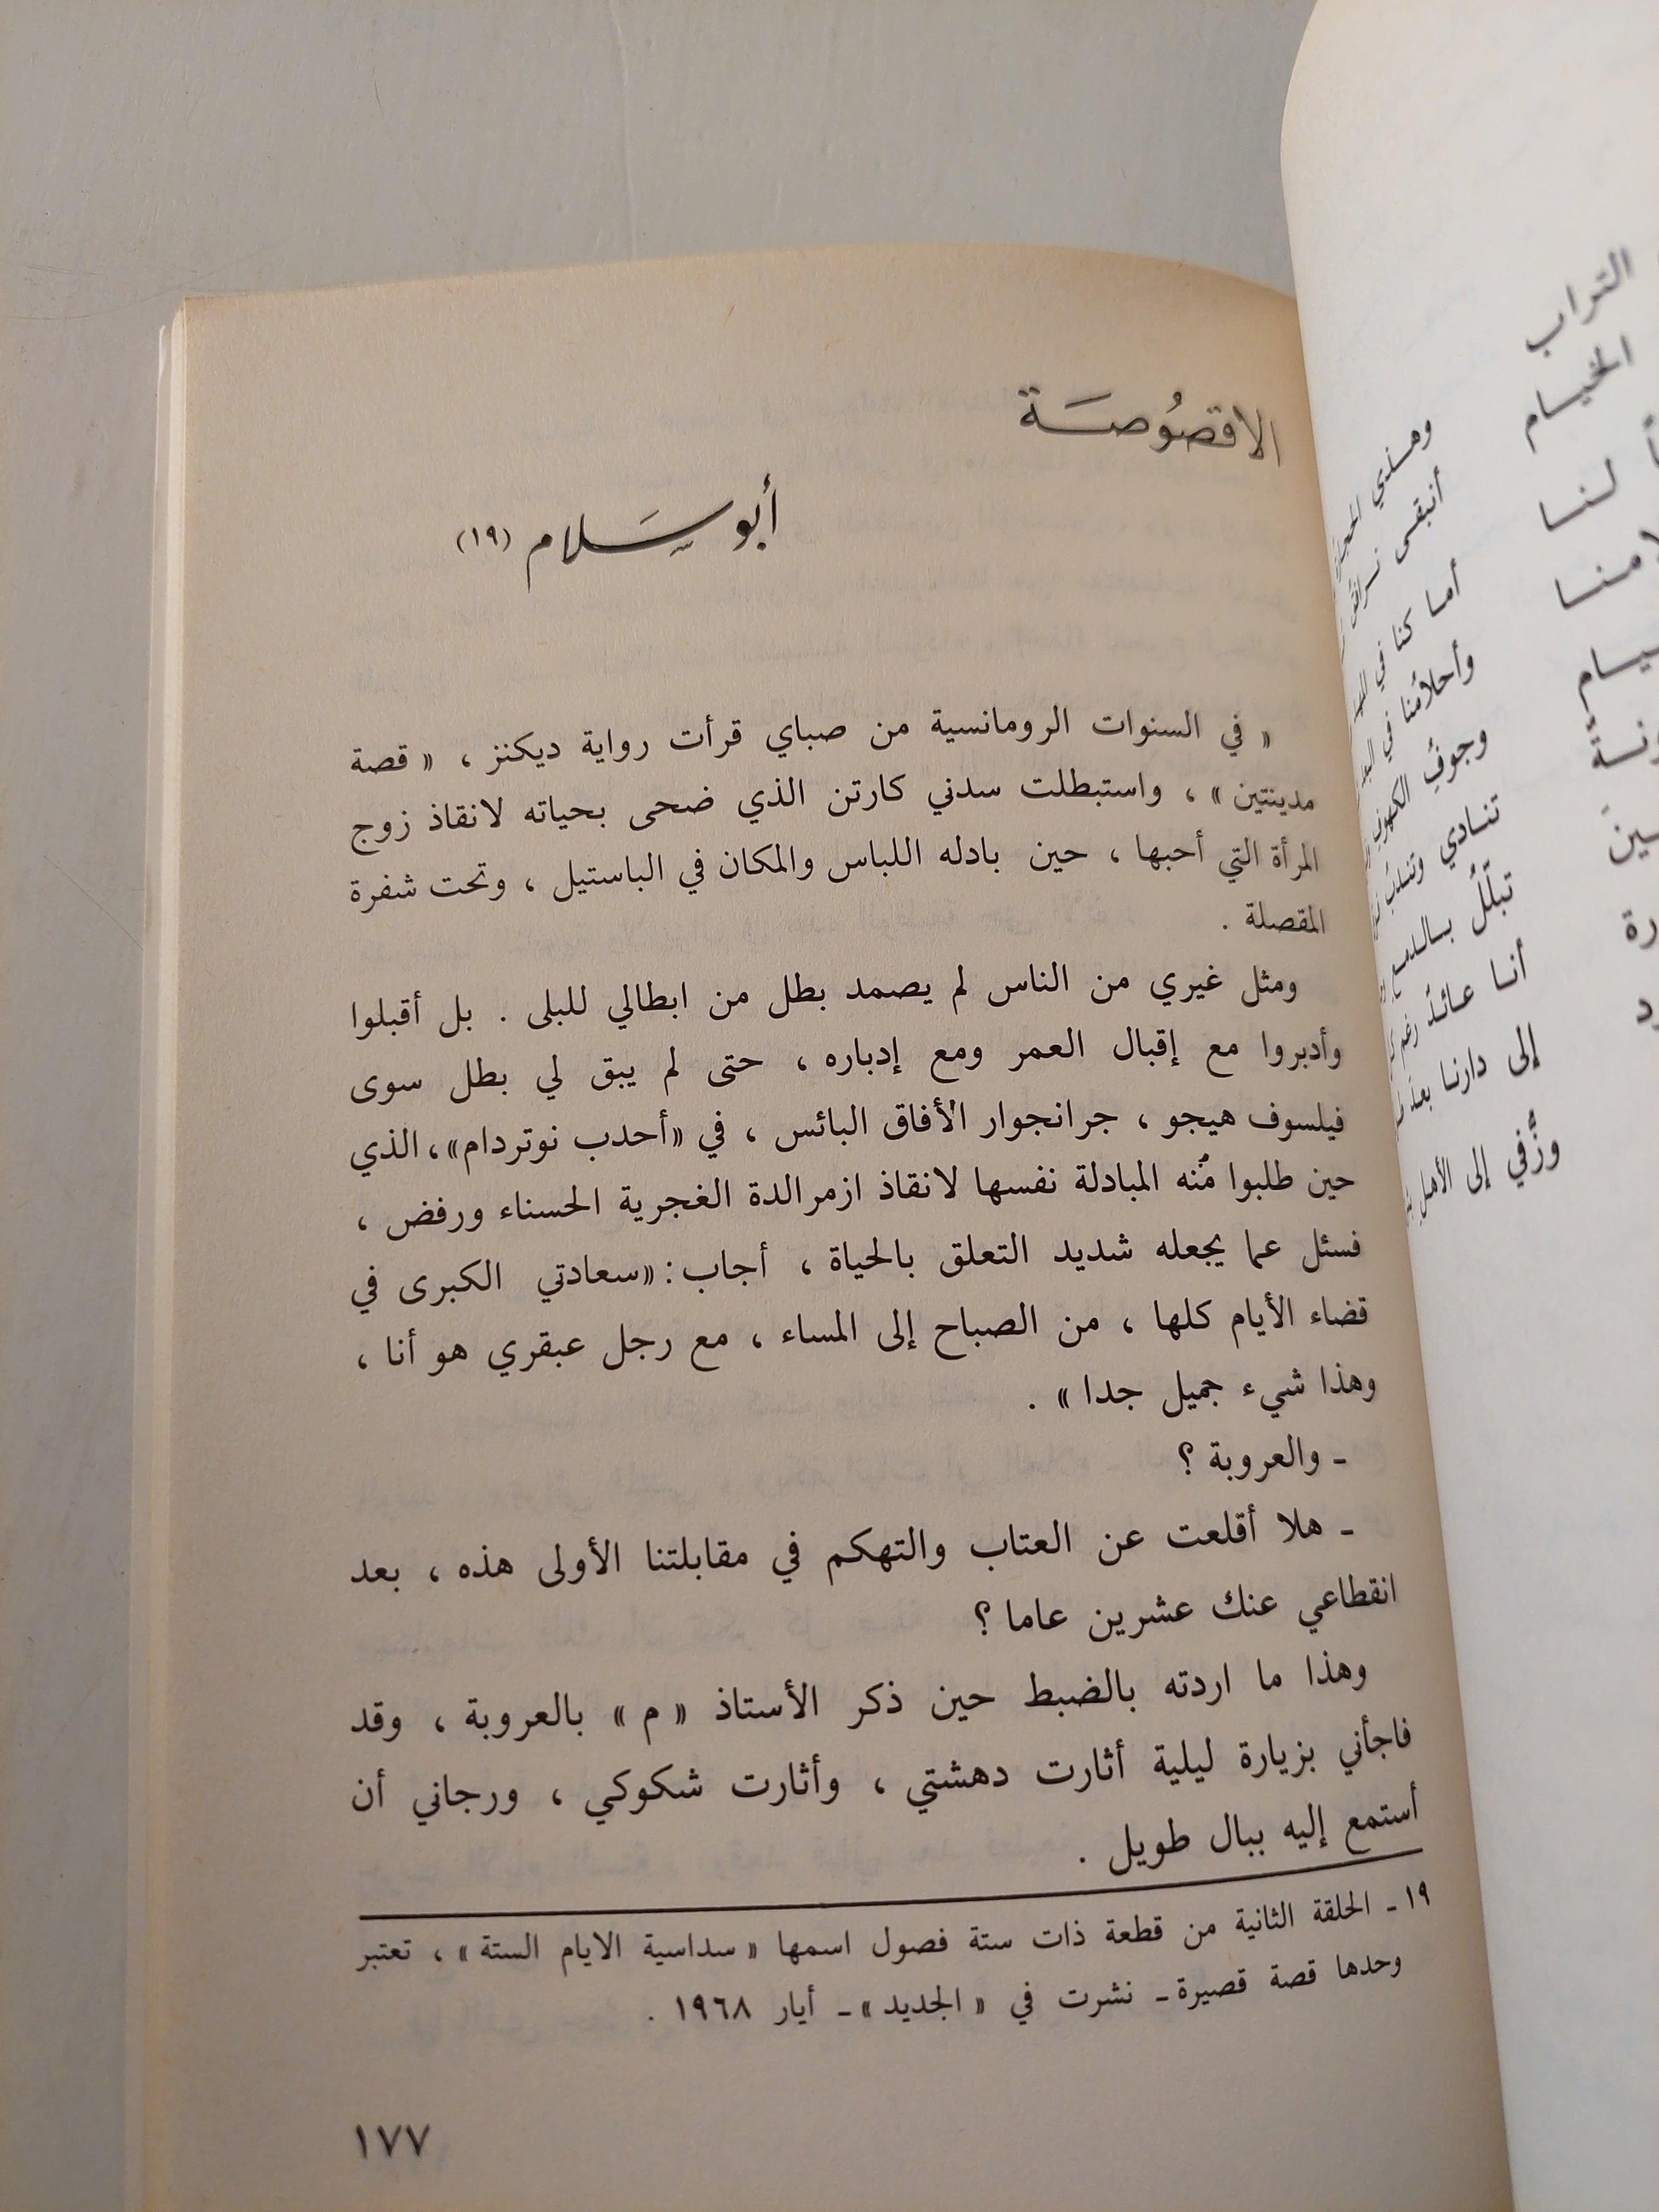 الاقصُوصَة
أبو سَلام (١٩)
« في السنوات الرومانسية من صباي قرأت رواية ديكنز ، « قصة
مدينتين » ، واستبطلت سدني كارتن الذي ضحى بحياته لانقاذ زوج
المرأة التي أحبها ، حين بادله اللباس والمكان في الباستيل ، وتحت شفرة
المقصلة .
ومثل غيري من الناس لم يصمد بطل من ابطالي للبلى . بل أقبلوا
وأدبروا مع إقبال العمر ومع إدباره ، حتى لم يبق لي بطل سوى
فيلسوف هيجو ، جرانجوار الأفاق البائس ، في «أحدب نوتردام» ، الذي
حين طلبوا منه المبادلة نفسها لانقاذ ازمرالدة الغجرية الحسناء ورفض ،
فسئل عما يجعله شديد التعلق بالحياة ، أجاب : «سعادتي الكبرى في
قضاء الأيام كلها ، من الصباح إلى المساء ، مع رجل عبقري هو أنا ،
وهذا شيء جميل جدا » .
ـ والعروبة ؟
ـ هلا أقلعت عن العتاب والتهكم في مقابلتنا الأولى هذه ، بعد
انقطاعي عنك عشرين عاما ؟
وهذا ما اردته بالضبط حين ذكر الأستاذ « م » بالعروبة ، وقد
فاجأني بزيارة ليلية أثارت دهشتي ، وأثارت شكوكي ، ورجاني أن
أستمع إليه ببال طويل .
١٩ ـ الحلقة الثانية من قطعة ذات ستة فصول اسمها « سداسية الايام الستة » ، تعتبر
وحدها قصة قصيرة ـ نشرت في « الجديد » ـ أيار ١٩٦٨ .
١٧٧
التراب
الخيام
لنا
أنبقى
أما كنا في
وأحلامُنا في
وجوفُ الكهوف
تنادي
تبلّلُ
أنا عائدٌ رغم
إلى دارنا بعد
وزُفّي إلى الأهل